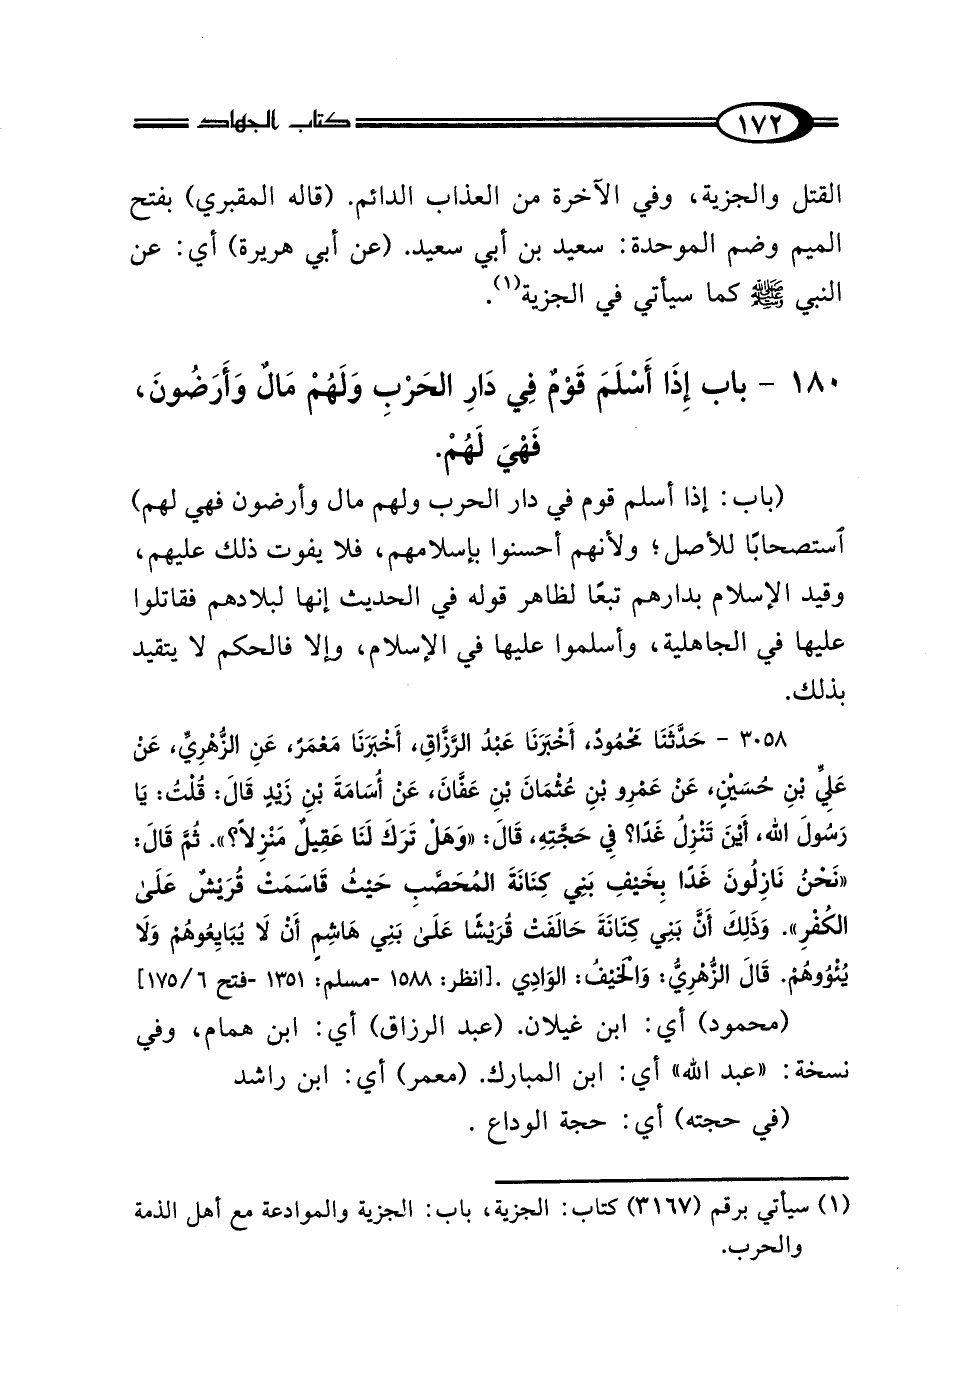 ١٧٢ كتاب الجهاد
القتل والجزية، وفي الآخرة من العذاب الدائم. (قاله المقبري) بفتح
الميم وضم الموحدة: سعيد بن أبي سعيد. (عن أبي هريرة) أي: عن
النبي ﷺ كما سيأتي في الجزية(١).
١٨٠ - باب إِذَا أَسْلَمَ قَوْمٌ فِي دَارِ الحَرْبِ وَلَهُمْ مَالٌ وَأَرَضُونَ،
فَهْيَ لَهُمْ.
(باب: إذا أسلم قوم في دار الحرب ولهم مال وأرضون فهي لهم)
ٱستصحابًا للأصل؛ ولأنهم أحسنوا بإسلامهم، فلا يفوت ذلك عليهم،
وقيد الإسلام بدارهم تبعًا لظاهر قوله في الحديث إنها لبلادهم فقاتلوا
عليها في الجاهلية، وأسلموا عليها في الإسلام، وإلا فالحكم لا يتقيد
بذلك.
٣٠٥٨ - حَدَّثَنَا مَحْمُودٌ، أَخْبَرَنَا عَبْدُ الرَّزَّاقِ، أَخْبَرَنَا مَعْمَرٌ، عَنِ الزُّهْرِيِّ، عَنْ
عَلِيِّ بْنِ حُسَيْنٍ، عَنْ عَمْرِو بْنِ عُثْمَانَ بْنِ عَفَّانَ، عَنْ أُسَامَةَ بْنِ زَيْدٍ قَالَ: قُلْتُ: يَا
رَسُولَ اللهِ، أَيْنَ تَنْزِلُ غَدًا؟ فِي حَجَّتِهِ، قَالَ: «وَهَلْ تَرَكَ لَنَا عَقِيلٌ مَنْزِلاً؟». ثُمَّ قَالَ:
«نَحْنُ نَازِلُونَ غَدًا بِخَيْفِ بَنِي كِنَانَةَ المُحَصَّبِ حَيْثُ قَاسَمَتْ قُرَيْشٌ عَلَى
الكُفْرِ». وَذَلِكَ أَنَّ بَنِي كِنَانَةَ حَالَفَتْ قُرَيْشًا عَلَى بَنِي هَاشِمٍ أَنْ لَا يُبَايِعُوهُمْ وَلَا
يُئْوُوهُمْ. قَالَ الزُّهْرِيُّ: وَالْخَيْفُ: الوَادِي .[انظر: ١٥٨٨ -مسلم: ١٣٥١ -فتح ٦/ ١٧٥]
(محمود) أي: ابن غيلان. (عبد الرزاق) أي: ابن همام، وفي
نسخة: «عبد الله» أي: ابن المبارك. (معمر) أي: ابن راشد
(في حجته) أي: حجة الوداع .
(١) سيأتي برقم (٣١٦٧) كتاب: الجزية، باب: الجزية والموادعة مع أهل الذمة
والحرب.